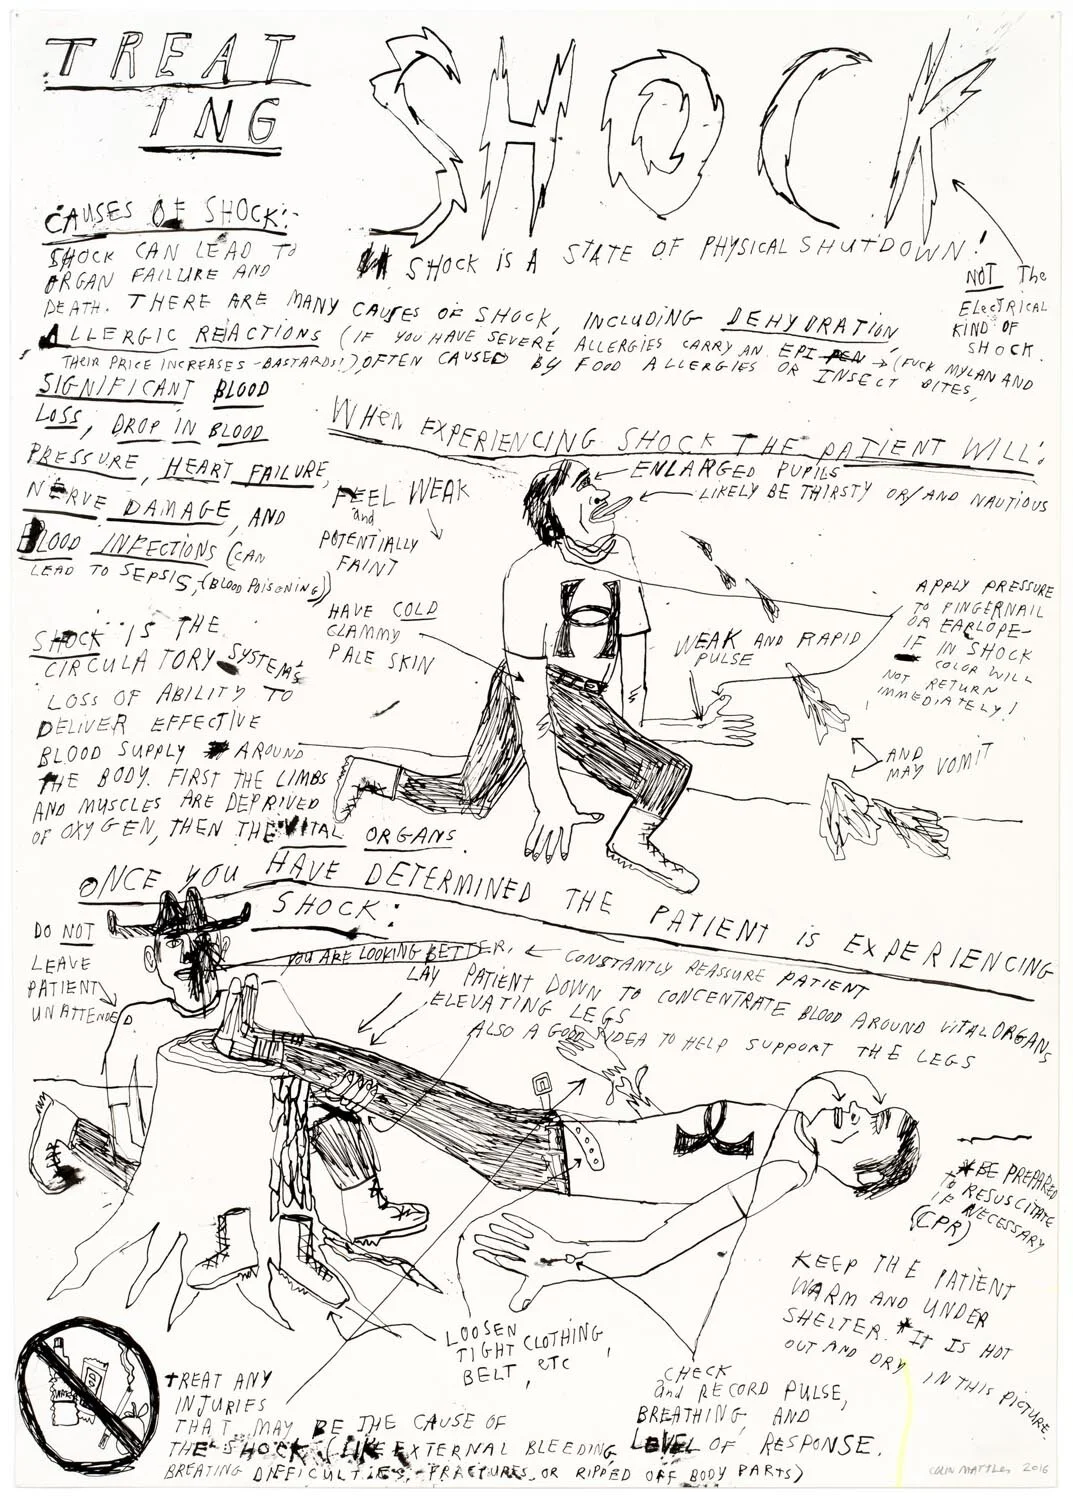 TREAT
ING
SHOCK
CAUSES OF SHOCK:-
SHOCK IS A STATE OF PHYSICAL SHUTDOWN!
NOT The
ELECTRICAL
KIND OF
SHOCK.
SHOCK CAN LEAD TO
ORGAN FAILURE AND
DEATH. THERE ARE MANY CAUSES OF SHOCK, INCLUDING DEHYDRATION,
ALLERGIC REACTIONS (IF YOU HAVE SEVERE ALLERGIES CARRY AN EPI PEN → (FUCK MYLAN AND
THEIR PRICE INCREASES - BASTARDS!) OFTEN CAUSED BY FOOD ALLERGIES OR INSECT BITES,
SIGNIFICANT BLOOD
LOSS, DROP IN BLOOD
PRESSURE, HEART FAILURE,
NERVE DAMAGE, AND
BLOOD INFECTIONS (CAN
LEAD TO SEPSIS, (BLOOD POISONING))
SHOCK IS THE
CIRCULATORY SYSTEMS
LOSS OF ABILITY TO
DELIVER EFFECTIVE
BLOOD SUPPLY AROUND
THE BODY. FIRST THE LIMBS
AND MUSCLES ARE DEPRIVED
OF OXYGEN, THEN THE VITAL ORGANS.
WHEN EXPERIENCING SHOCK THE PATIENT WILL:
ENLARGED PUPILS
LIKELY BE THIRSTY OR/AND NAUTIOUS
FEEL WEAK
and
POTENTIALLY
FAINT
HAVE COLD
CLAMMY
PALE SKIN
WEAK AND RAPID
PULSE
APPLY PRESSURE
TO FINGERNAIL
OR EARLOPE-
IF IN SHOCK
COLOR WILL
NOT RETURN
IMMEDIATELY!
AND
MAY VOMIT
ONCE YOU HAVE DETERMINED THE PATIENT IS EXPERIENCING
SHOCK:
DO NOT
LEAVE
PATIENT
UNATTENDED
YOU ARE LOOKING BETTER.
CONSTANTLY REASSURE PATIENT
LAY PATIENT DOWN TO CONCENTRATE BLOOD AROUND VITAL ORGANS
ELEVATING LEGS
ALSO A GOOD IDEA TO HELP SUPPORT THE LEGS
*BE PREPARED
TO RESUSCITATE
IF NECESSARY
(CPR)
KEEP THE PATIENT
WARM AND UNDER
SHELTER. *IT IS HOT
OUT AND DRY IN THIS PICTURE.
LOOSEN
TIGHT CLOTHING,
BELT, ETC
CHECK
and RECORD PULSE,
BREATHING, AND
LEVEL OF RESPONSE.
TREAT ANY
INJURIES
THAT MAY BE THE CAUSE OF
THE SHOCK (LIKE EXTERNAL BLEEDING,
BREATING DIFFICULTIES, FRACTURES, OR RIPPED OFF BODY PARTS)
2016